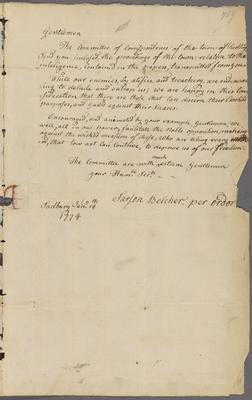 Gentlemen
The Committee of Correspondence of the town of
send you inclosed, the proceedings of this town relative to the
intelligence, contained in the papers, transmitted from you.
While our enemies, by artifice and treachery, are endeavour-
ing to delude and entrap us; we are happy in this Con-
sideration that there are those that can discern their Crooked
purposes, and guard against their snares.
Encouraged, and animated by your example, Gentlemen, we
will, all in our power, facilitate the noble opposition, making
against the wicked measures of those, who are trying every
in, that low art can contrive, to deprive us of our freedom.
The Committee are with much esteem Gentlemen
your Humle Servts
Sarson Belcher, per order
Sudbury Janry
1774